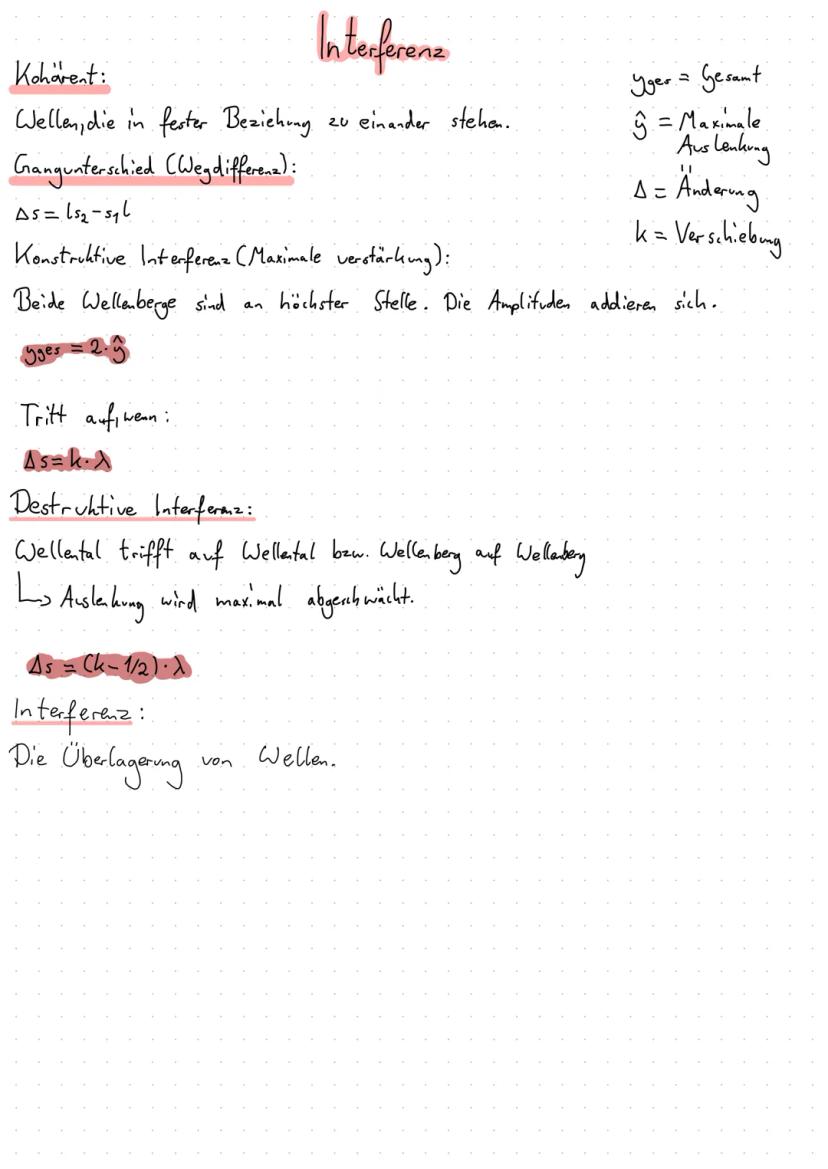 Interferenz
Kohärent:
Wellen, die in fester Beziehung zu einander stehen.
Gangunterschied (Wegdifferenz):
Δs = |s₂-s₁|
Konstruktive Interferenz (Maximale verstärkung):
Beide Wellenberge sind an höchster Stelle. Die Amplituden addieren sich.
yges = 2·ŷ
Tritt auf, wenn:
Δs=k·λ
Destruktive Interferenz:
Wellental trifft auf Wellental bzw. Wellenberg auf Wellenberg
↳ Auslenkung wird maximal abgeschwächt.
Δs = (k-1/2)·λ
Interferenz:
Die Überlagerung von Wellen.
yges = Gesamt
ŷ = Maximale
Auslenkung
Δ = Änderung
k = Verschiebung